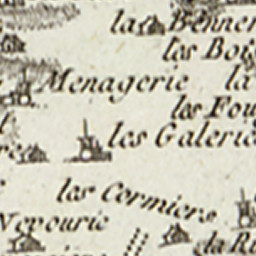 la Benner
les Bois
Menagerie la
les Fou
les Galerie
les Cormiers
Nevourie
da Ru